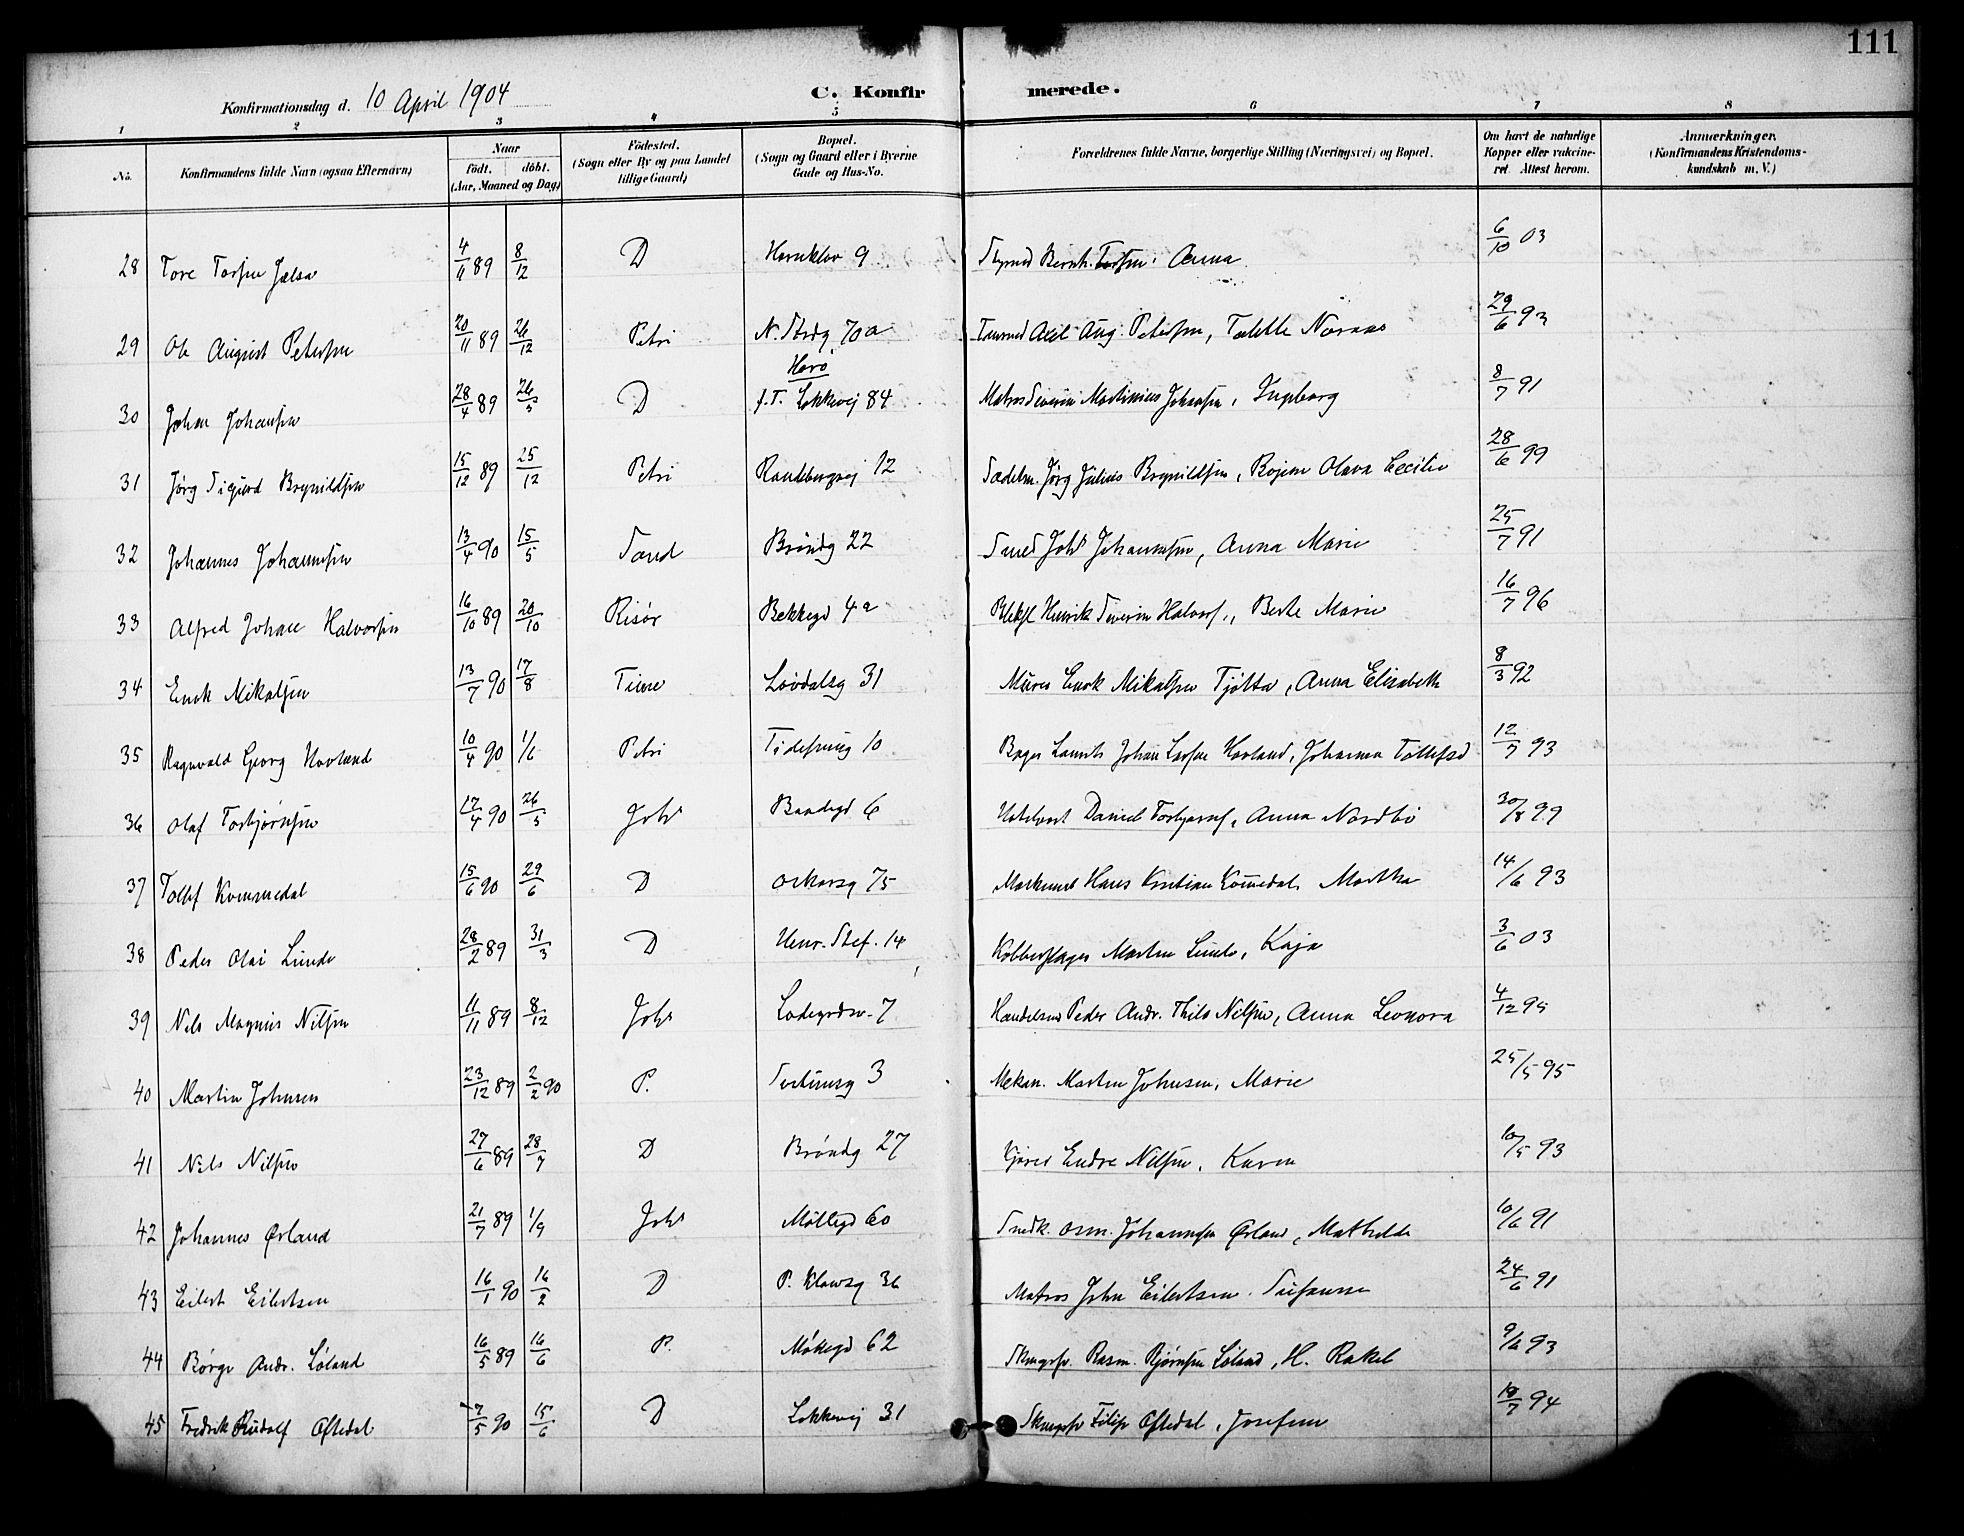 111
Konfirmationsdag d. 10 April 1904
C. Konfirmerede.
1 2 3 4 5 6 7 8
No. Konfirmandens fulde Navn (ogsaa Efternavn) Naar født. døbt. (Aar, Maaned og Dag) Fødested. (Sogn eller By og paa Landet tillige Gaard) Bopæl. (Sogn og Gaard eller i Byerne Gade og Hus-No. Forældrenes fulde Navne, borgerlige Stilling (Næringsvei) og Bopæl. Om havt de naturlige Kopper eller vaccineret. Attest herom. Anmærkninger. (Konfirmandens Kristendomskundskab m. V.)
28 Tore Torsen Jelsa 4/11 89 8/12 D 9 Bernh. Torsen. Anna 6/10 03
29 Ole August Petersen 20/11 89 26/12 Petri N. Strdg 70a Axel Aug. Petersen, 29/6 93
30 Johan Johansen 28/4 89 26/5 D Herö f. T. Lökkevej 84 Matros Severin Martinius Johansen, Ingeborg 8/7 91
31 Jörg Sigurd Brynildsen 15/12 89 25/12 Petri Randebergvej 12 Sadelm. Jörg Julius Brynildsen, Olava Cecilie 28/6 99
32 Johannes Johannesen 13/4 90 15/5 Sand Bröndg 22 Smed Johs Johannesen, Anna Marie 25/7 91
33 Alfred Johan Halvorsen 16/10 89 20/10 Risör Bekkegd 4a Henrik Severin Halvors., Berte Marie 16/7 96
34 Enok Mikalsen 13/7 90 17/8 Time Lövdalsg 31 Murer Enok Mikalsen Tjötta, Anna Elisabeth 8/3 92
35 Ragnvald Georg Hovland 10/4 90 1/6 Petri 10 Bager Laurits Johan Larsen Hovland, Johanna Tollefsd 12/7 93
36 Olaf Torbjörnsen 17/4 90 26/5 Johs Baadegd 6 Daniel Torbjörns., Anna Nordbö 30/8 99
37 Tollef Kommedal 15/6 90 29/6 D Oskarsg 75 Hans Kristian Kommedal, Martha 14/6 93
38 Peder Olai Lunde 28/2 89 31/3 D Henr. Stef. 14 Kobberslager Martin Lunde, Kaja 3/6 03
39 Nels Magnus Nilsen 11/11 89 8/12 Johs Ladegrdsv. 7 Handelsm Peder Andr. Thilo Nilsen, Anna Leonora 4/12 95
40 Martin Johnsen 23/12 89 2/2 90 P. 3 Mekan. Martin Johnsen, Marie 25/5 95
41 Nils Nilsen 27/6 89 28/7 D Bröndg 27 Endre Nilsen, Karen 10/5 93
42 Johannes Örland 21/7 89 1/9 Johs Möllegd 60 Snedk. Osm. Johannesen Örland, Mathilde 10/6 91
43 Eilert Eilertsen 16/1 90 16/2 D P. Klowsg 36 Matros John Eilertsen. Susanne 24/6 91
44 Börge Andr. Löland 16/5 89 16/6 P. 62 Rasm. Bjørnsen Löland, H. Rakel 9/6 93
45 Fredrik Rudolf Oftedal 7/5 90 15/6 D Lökkevej 31 Filip Oftedal, Josefine 10/7 94